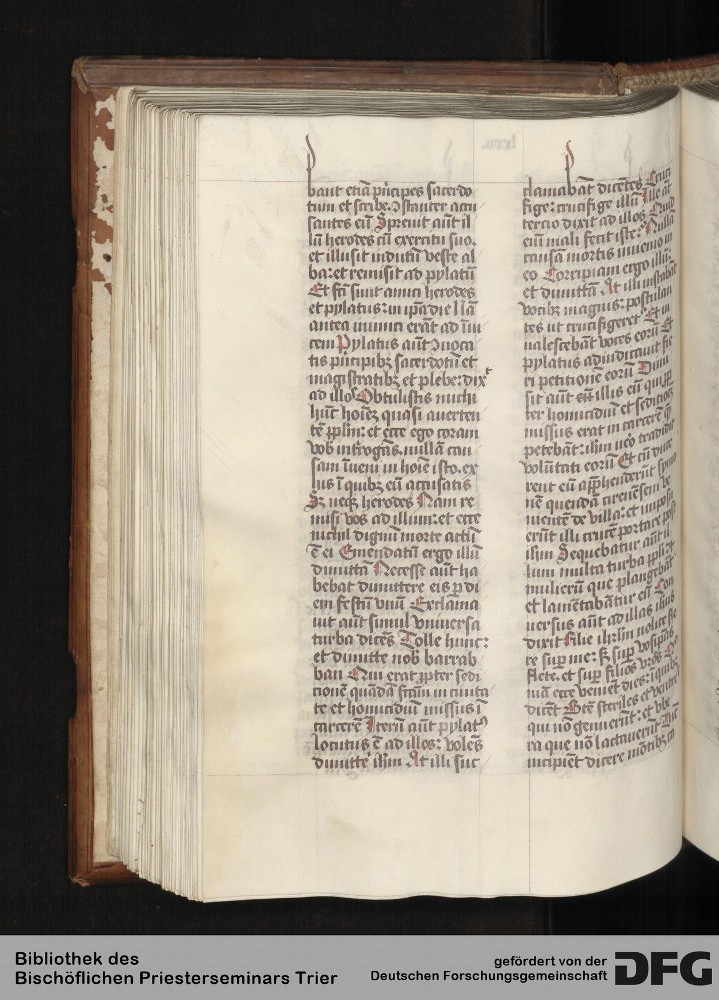 bant etiā pͥncipes sacerdo
tum et scribe: ↄstanter accu
santes eū Spreuit aūt il
lū herodes cū exercitu suo.
et illusit indutū veste al
ba: et remisit ad pylatū
Et fc̄i sunt amici herodes
et pylatus: in ip̄a die
antea inimici erāt ad īui
cem Pylatus aūt ↄuoca
tis pͥncipibꝫ sacerdotū et
magistratibꝫ et plebe: dixͭ
ad illos Obtulistis michi
hūc hoīeꝫ quasi auerten
tē pplm̄: et ecce ego coram
vob int̄rogās. nullā cau
sam īueni in hoīe isto. ex
hiis ī quibꝫ eū accusatis
Sꝫ neqꝫ herodes Nam re
misi vos ad illum: et ecce
nichil dignū morte actū
ē ei Emendatū ergo illū
dimittā Necesse aūt ha
bebat dimittere eis ꝑ di
em festū vnū Exclama
uit aūt simul vniuersa
turba dicēs Tolle hunc:
et dimitte nob̄ barrab
ban Qui erat ꝓpter sedi
cionē quādā fc̄am in ciuita
te et homicidiū missus ī
carcerē Iterū aūt pylatꝰ
locutus ē ad illos: volēs
dimitte ihm̄ At illi suc
clamabāt dicētes Cruci
fige: crucifige illū Ille aūt
tercio dixit ad illos Quid
eniͫ mali fecit iste: Nullā
causā mortis inuenio in
eo Corripiam ergo illū:
et dimittā At illi instabāt
vocibꝫ magnis: postulan
tes ut crucifigeretᷣ Et in
ualescebāt voces eorū Et
pylatus adiudicauit fie
ri petitionē eorū Dimi
sit aūt eis illis eū qui ꝓp
ter homicidiū et seditioꝫ
missus erat in carcerē quē
petebāt: ihm̄ vēo tradidit
volūtati eorū Et cū duce
rent eū app̄henderūt symo
nē quendā cirenēsem ve
nientē de villa: et imposu
erūt illi crucē portare post
ihm̄ Sequebatur aūt il
lum multa turba ppli: et
mulierū que plangebāt
et lamētabātur eū Con
uersus aūt ad illas ihūs
dixit Filie ihrl̄m nolite fle
re sup me: sꝫ sup vosip̄as
flete. et sup filios vrōs Qm̄
niā ecce veniēt dies: ī quibꝫ
dicēt Btē̄ steriles et ventres
qui nō genuerūt: et vbe
ra que nō lactauerūt Tūc
incipiēt dicere mōtibꝫ ca
Bibliothek des
Bischöflichen Priesterseminars Trier
gefördert von der
Deutschen Forschungsgemeinschaft
DFG